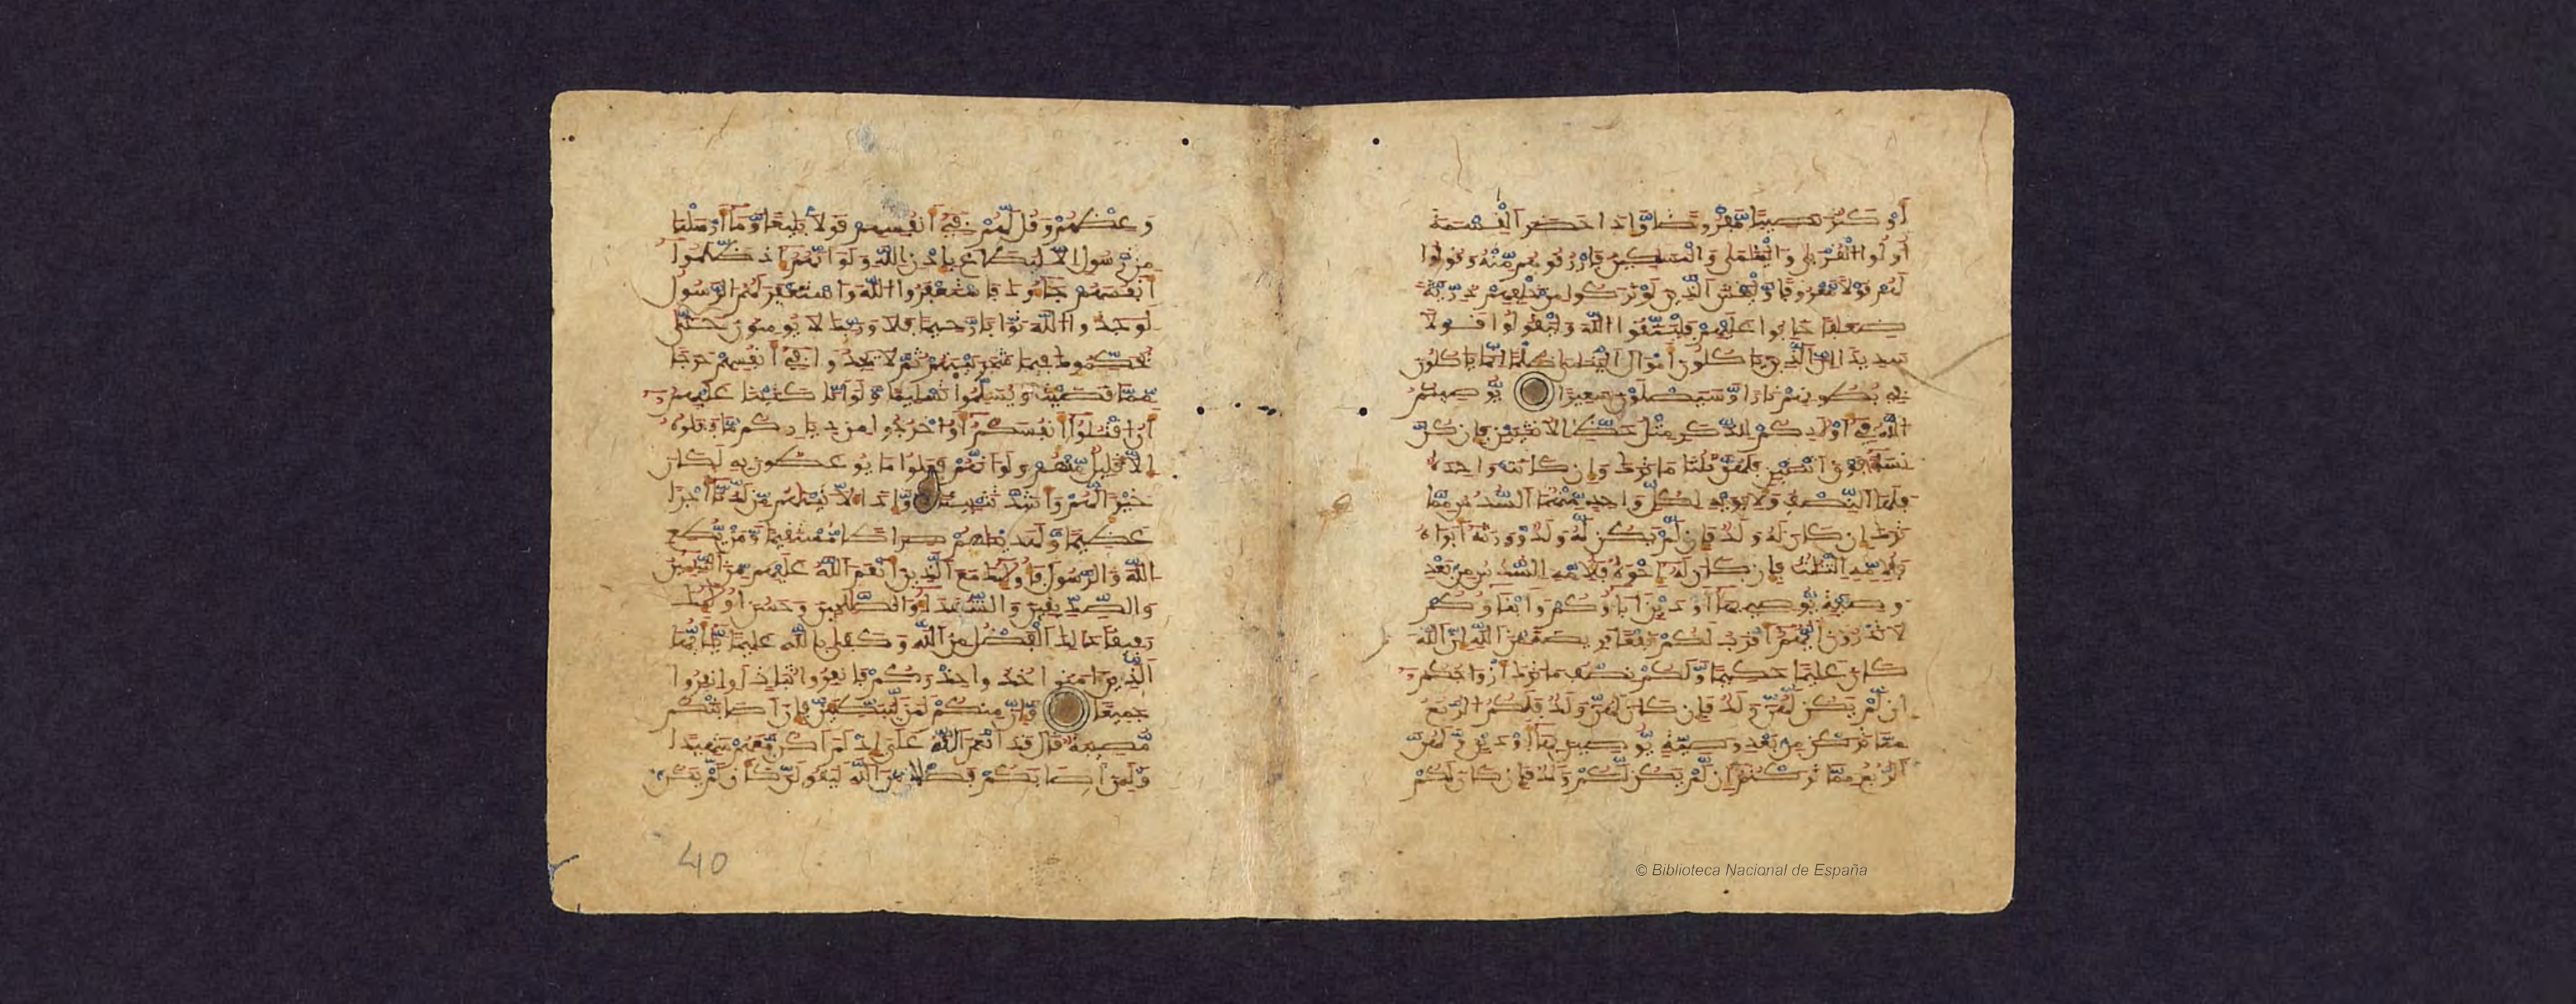 أَوْ كَثُرَ نَصِيبًا مَّفْرُوضًا وَّإِذَا حَضَرَ الْقِسْمَةَ
أُوْلُوا الْقُرْبَى وَالْيَتَمَى وَالْمَسَكِينُ فَارْزُقُوهُم مِّنْهُ وَقُولُوا
لَهُمْ قَوْلًا مَّعْرُوفًا وَّلْيَخْشَ الَّذِينَ لَوْ تَرَكُوا مِنْ خَلْفِهِمْ ذُرِّيَّةً
ضِعَفًا خَافُوا عَلَيْهِمْ فَلْيَتَّقُوا اللَّهَ وَلْيَقُولُوا قَوْلًا
سَدِيدًا إِنَّ الَّذِينَ يَاكُلُونَ أَمْوَالَ الْيَتَمَى ظُلْمًا إِنَّمَا يَاكُلُونَ
فِي بُطُونِهِمْ نَارًا وَّسَيَصْلَوْنَ سَعِيرًا يُوصِيكُمُ
اللَّهُ فِي أَوْلَدِكُمْ لِلذَّكَرِ مِثْلُ حَظِّ الْأُنثَيَيْنِ فَإِن كُنَّ
نِسَاءً فَوْقَ اثْنَتَيْنِ فَلَهُنَّ ثُلُثَا مَا تَرَكَ وَإِن كَانَتْ وَاحِدَةٌ
فَلَهَا النِّصْفُ وَلِأَبَوَيْهِ لِكُلِّ وَاحِدٍ مِّنْهُمَا السُّدُسُ مِمَّا
تَرَكَ إِن كَانَ لَهُ وَلَدٌ فَإِن لَّمْ يَكُن لَّهُ وَلَدٌ وَّوَرِثَهُ أَبَوَاهُ
فَلِأُمِّهِ الثُّلُثُ فَإِن كَانَ لَهُ إِخْوَةٌ فَلِأُمِّهِ السُّدُسُ مِن بَعْدِ
وَصِيَّةٍ يُوصِي بِهَا أَوْ دَيْنٍ آبَاؤُكُمْ وَأَبْنَاؤُكُمْ
لَا تَدْرُونَ أَيُّهُمْ أَقْرَبُ لَكُمْ نَفْعًا فَرِيضَةً مِّنَ اللَّهِ إِنَّ اللَّهَ
كَانَ عَلِيمًا حَكِيمًا وَّلَكُمْ نِصْفُ مَا تَرَكَ أَزْوَاجُكُمُ
إِن لَّمْ يَكُن لَّهُنَّ وَلَدٌ فَإِن كَانَ لَهُنَّ وَلَدٌ فَلَكُمُ الرُّبُعُ
مِمَّا تَرَكْنَ مِن بَعْدِ وَصِيَّةٍ يُوصِينَ بِهَا أَوْ دَيْنٍ وَّلَهُنَّ
الرُّبُعُ مِمَّا تَرَكْتُمْ إِن لَّمْ يَكُن لَّكُمْ وَلَدٌ فَإِن كَانَ لَكُمْ
وَعِظْهُمْ وَقُل لَّهُمْ فِي أَنفُسِهِمْ قَوْلًا بَلِيغًا وَّمَا أَرْسَلْنَا
مِن رَّسُولٍ إِلَّا لِيُطَاعَ بِإِذْنِ اللَّهِ وَلَوْ أَنَّهُمْ إِذ ظَّلَمُوا
أَنفُسَهُمْ جَاءُوكَ فَاسْتَغْفَرُوا اللَّهَ وَاسْتَغْفَرَ لَهُمُ الرَّسُولُ
لَوَجَدُوا اللَّهَ تَوَّابًا رَّحِيمًا فَلَا وَرَبِّكَ لَا يُومِنُونَ حَتَّى
يُحَكِّمُوكَ فِيمَا شَجَرَ بَيْنَهُمْ ثُمَّ لَا يَجِدُوا فِي أَنفُسِهِمْ حَرَجًا
مِّمَّا قَضَيْتَ وَيُسَلِّمُوا تَسْلِيمًا وَّلَوْ أَنَّا كَتَبْنَا عَلَيْهِمُ
أَنُ اقْتُلُوا أَنفُسَكُمْ أَوُ اخْرُجُوا مِن دِيَارِكُم مَّا فَعَلُوهُ
إِلَّا قَلِيلٌ مِّنْهُمْ وَلَوْ أَنَّهُمْ فَعَلُوا مَا يُوعَظُونَ بِهِ لَكَانَ
خَيْرًا لَّهُمْ وَأَشَدَّ تَثْبِيتًا وَّإِذًا لَّآتَيْنَهُم مِّن لَّدُنَّا أَجْرًا
عَظِيمًا وَّلَهَدَيْنَهُمْ صِرَاطًا مُّسْتَقِيمًا وَّمَن يُّطِعِ
اللَّهَ وَالرَّسُولَ فَأُوْلَئِكَ مَعَ الَّذِينَ أَنْعَمَ اللَّهُ عَلَيْهِم مِّنَ النَّبِيِّينَ
وَالصِّدِّيقِينَ وَالشُّهَدَاءِ وَالصَّلِحِينَ وَحَسُنَ أُوْلَئِكَ
رَفِيقًا ذَلِكَ الْفَضْلُ مِنَ اللَّهِ وَكَفَى بِاللَّهِ عَلِيمًا يَأَيُّهَا
الَّذِينَ آمَنُوا خُذُوا حِذْرَكُمْ فَانفِرُوا ثُبَاتٍ أَوِ انفِرُوا
جَمِيعًا وَّإِنَّ مِنكُمْ لَمَن لَّيُبَطِّئَنَّ فَإِنْ أَصَابَتْكُم
مُّصِيبَةٌ قَالَ قَدْ أَنْعَمَ اللَّهُ عَلَيَّ إِذْ لَمْ أَكُن مَّعَهُمْ شَهِيدًا
وَّلَئِنْ أَصَابَكُمْ فَضْلٌ مِّنَ اللَّهِ لَيَقُولَنَّ كَأَن لَّمْ يَكُن
40
© Biblioteca Nacional de España